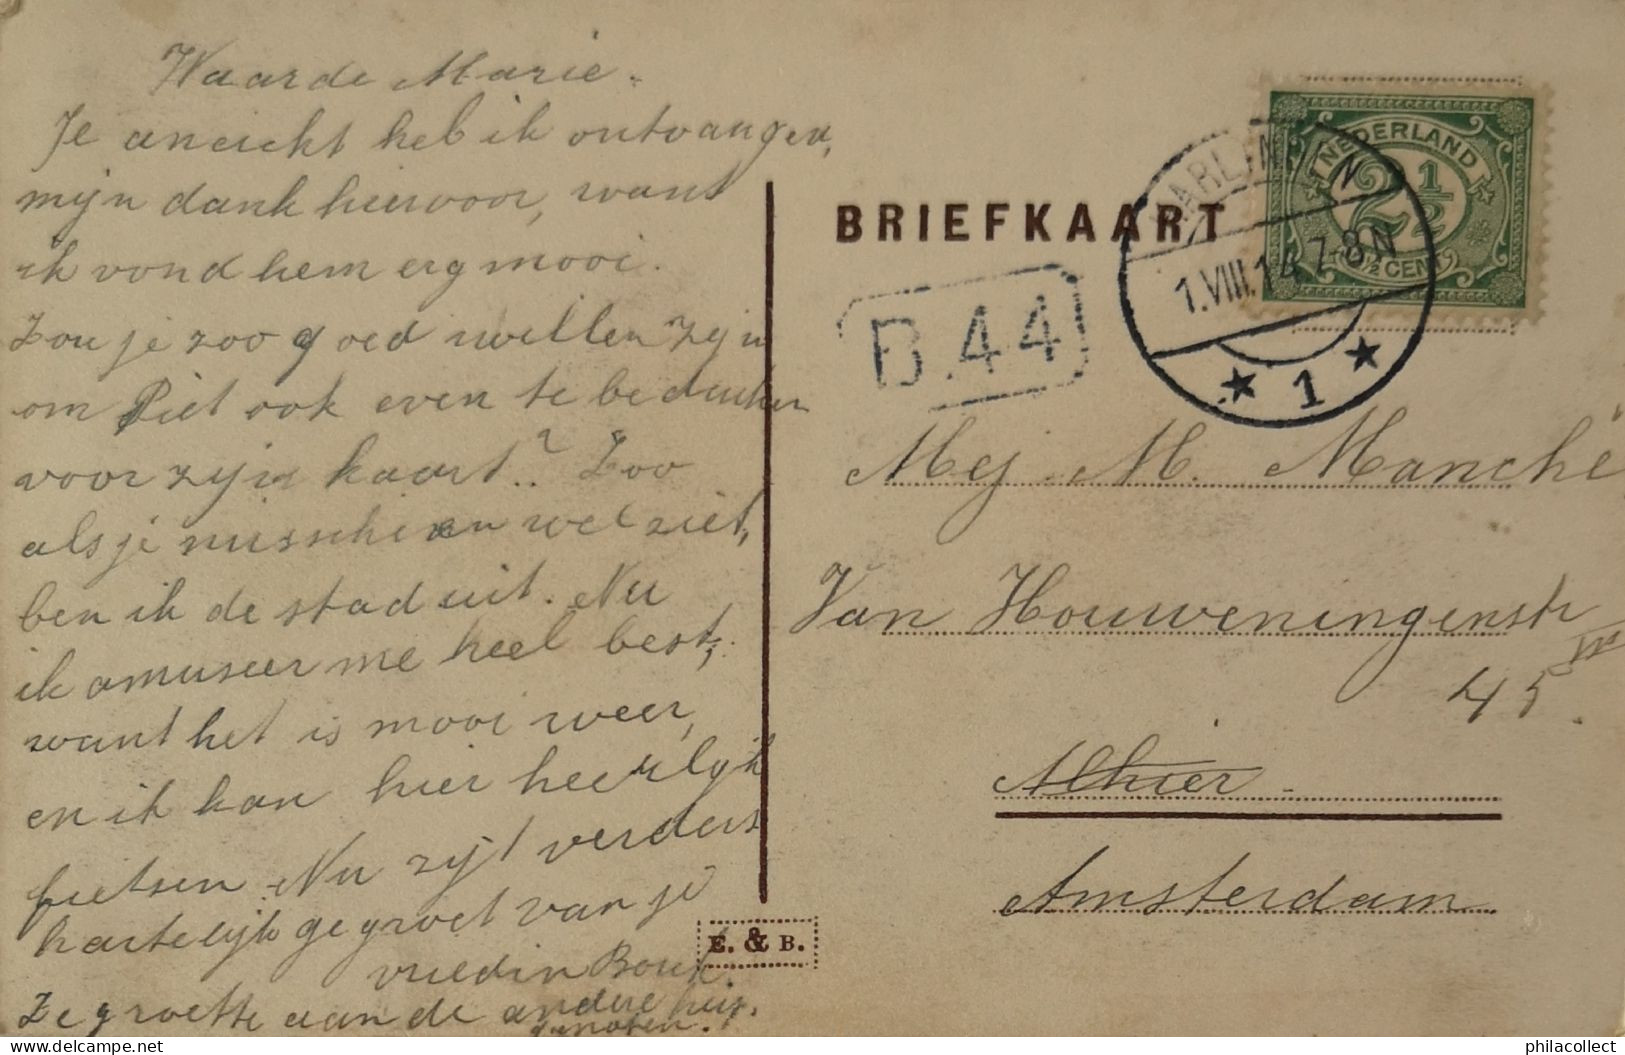 Waarde Marie.
Je ansicht heb ik ontvangen,
mijn dank hiervoor, want
ik vond hem erg mooi.
Zou je zoo goed willen zijn
om Piet ook even te bedanken
voor zijn kaart? Zoo
als je misschien wel ziet,
ben ik de stad uit. Nu
ik amuseer me heel best,
want het is mooi weer,
en ik kan hier heerlijk
fietsen. Nu zijt verders
hartelijk gegroet van je
vriedin
De groette aan de andere huis
genoten.
BRIEFKAART
NEDERLAND
2½
2½ CENT
HARLINGEN
1.VIII.14 7-8N
1
B.44
Mej. M. Manché
Van Houweningenstr
45 III
Alhier.
Amsterdam.
E. & B.
philacollect
delcampe.net